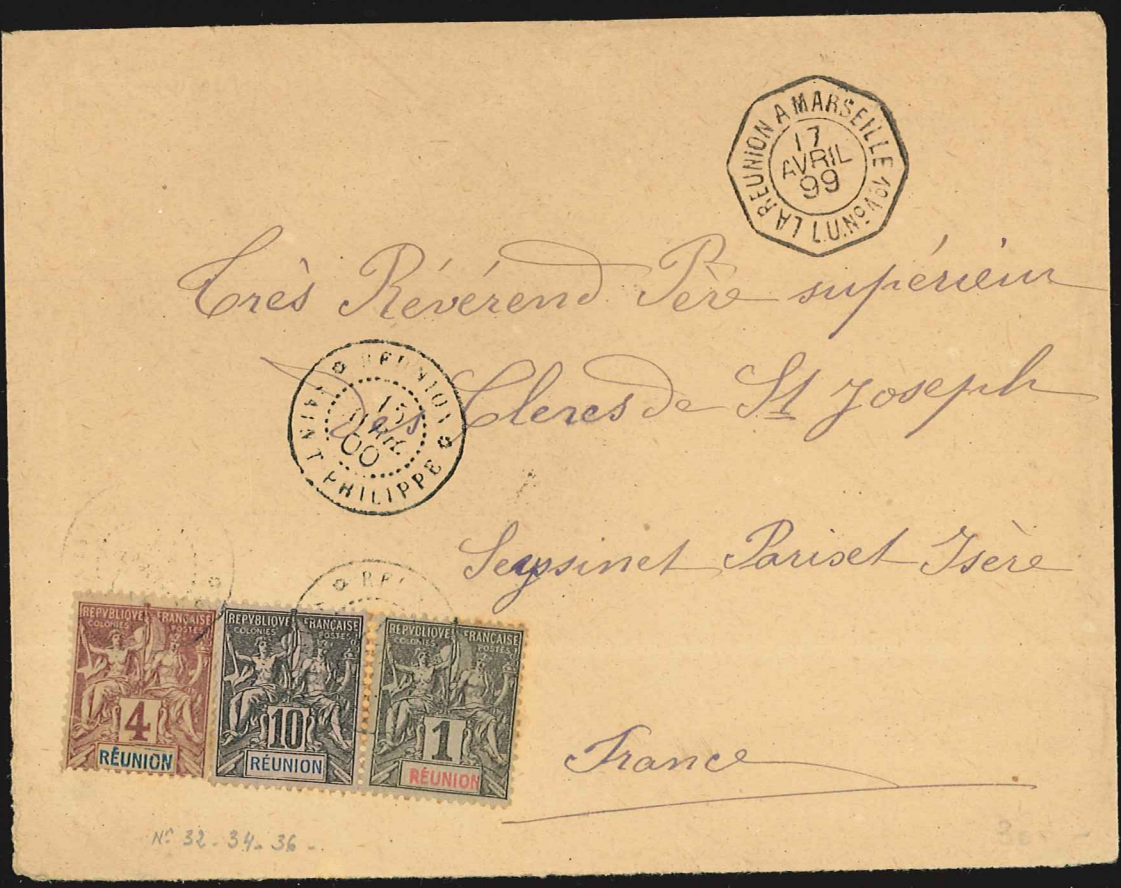 LA REUNION A MARSEILLE L.U.N° 1
17
AVRIL
99
Très Révérend Père supérieur
des Clercs de St Joseph
REUNION
15
AVRIL
00
SAINT PHILIPPE
Seyssinet Pariset Isère
REPVBLIQVE FRANÇAISE
COLONIES POSTES
4
RÉUNION
REPVBLIQVE FRANÇAISE
COLONIES POSTES
10
RÉUNION
REPVBLIQVE FRANÇAISE
COLONIES POSTES
1
RÉUNION
France
N° 32 - 34 - 36 -